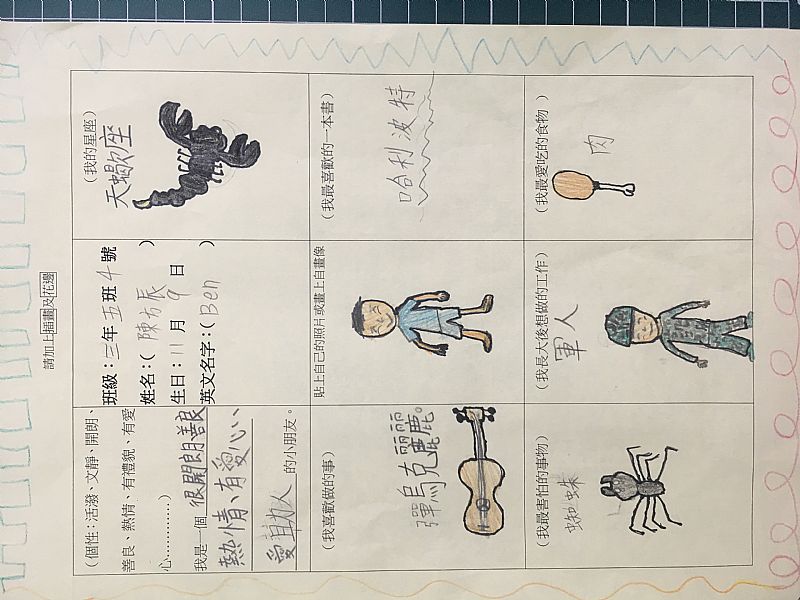 請加上插畫及花邊
(個性：活潑、文靜、開朗、
善良、熱情、有禮貌、有愛
心…………)
我是一個 很開朗善良
熱情、有愛心、
愛助人 的小朋友。
班級：三年五班4號
姓名：( 陳方辰 )
生日：11月9日
英文名字：( Ben )
(我的星座)
天蠍座
(我喜歡做的事)
彈烏克麗麗。
貼上自己的照片或畫上自畫像
(我最喜歡的一本書)
哈利波特
(我最害怕的事物)
蜘蛛
(我長大後想做的工作)
軍人
(我最愛吃的食物)
肉